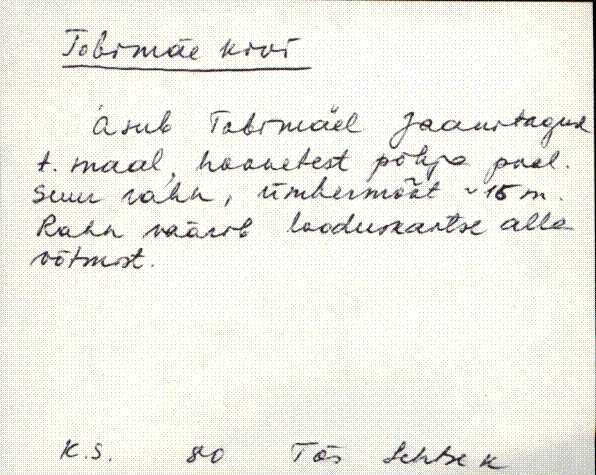 Tobimäe kivi
Asub Tobimäel Jaanitagused
t. maal, hoonetest põhja pool.
Suur rahn, ümbermõõt ~ 15 m.
Rahn väärib looduskaitse alla
võtmist.
K.S. 80 Tõs Sehtse k